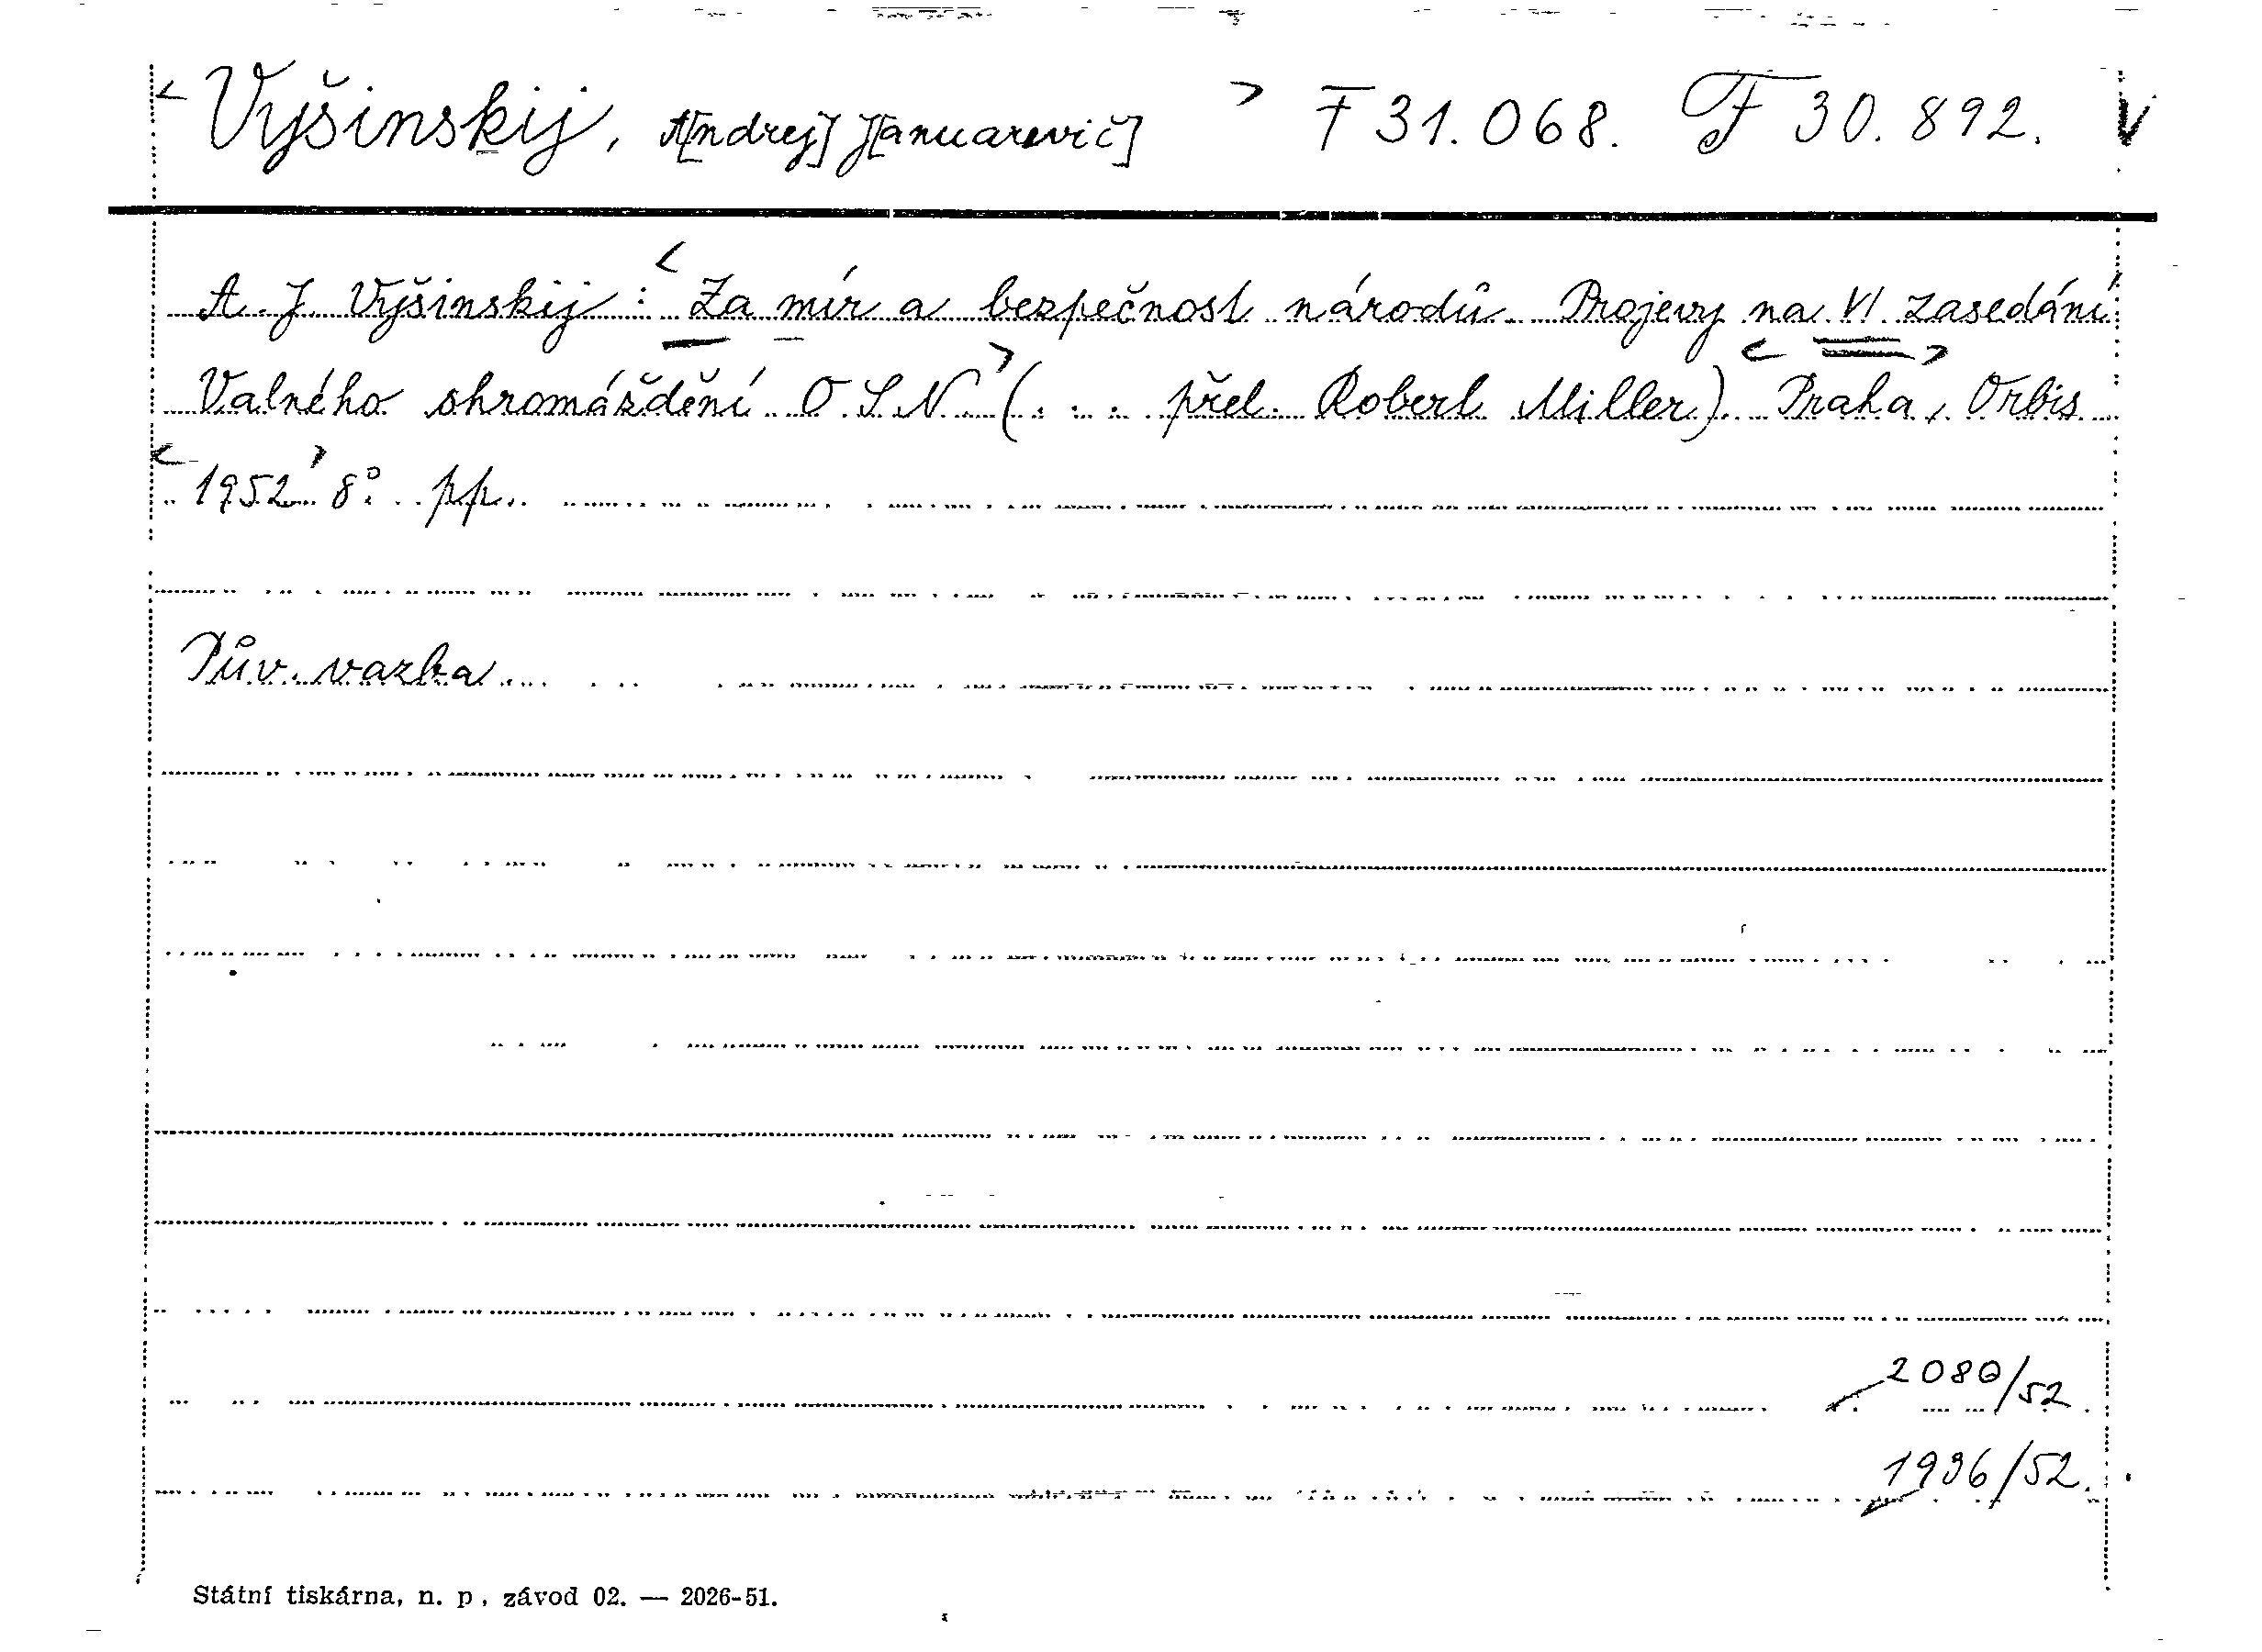 < Vyšinskij, A[ndrej] J[anuarevič] > F 31.068. F 30.892. V
A. J. Vyšinskij: < Za mír a bezpečnost národů. Projevy na VI. zasedání
Valného shromáždění O.S.N. > (... přel. Robert Miller). < Praha >, Orbis
< 1952 > 8°. pp.
Pův. vazba.
2080/52.
1936/52.
Státní tiskárna, n. p., závod 02. — 2026-51.